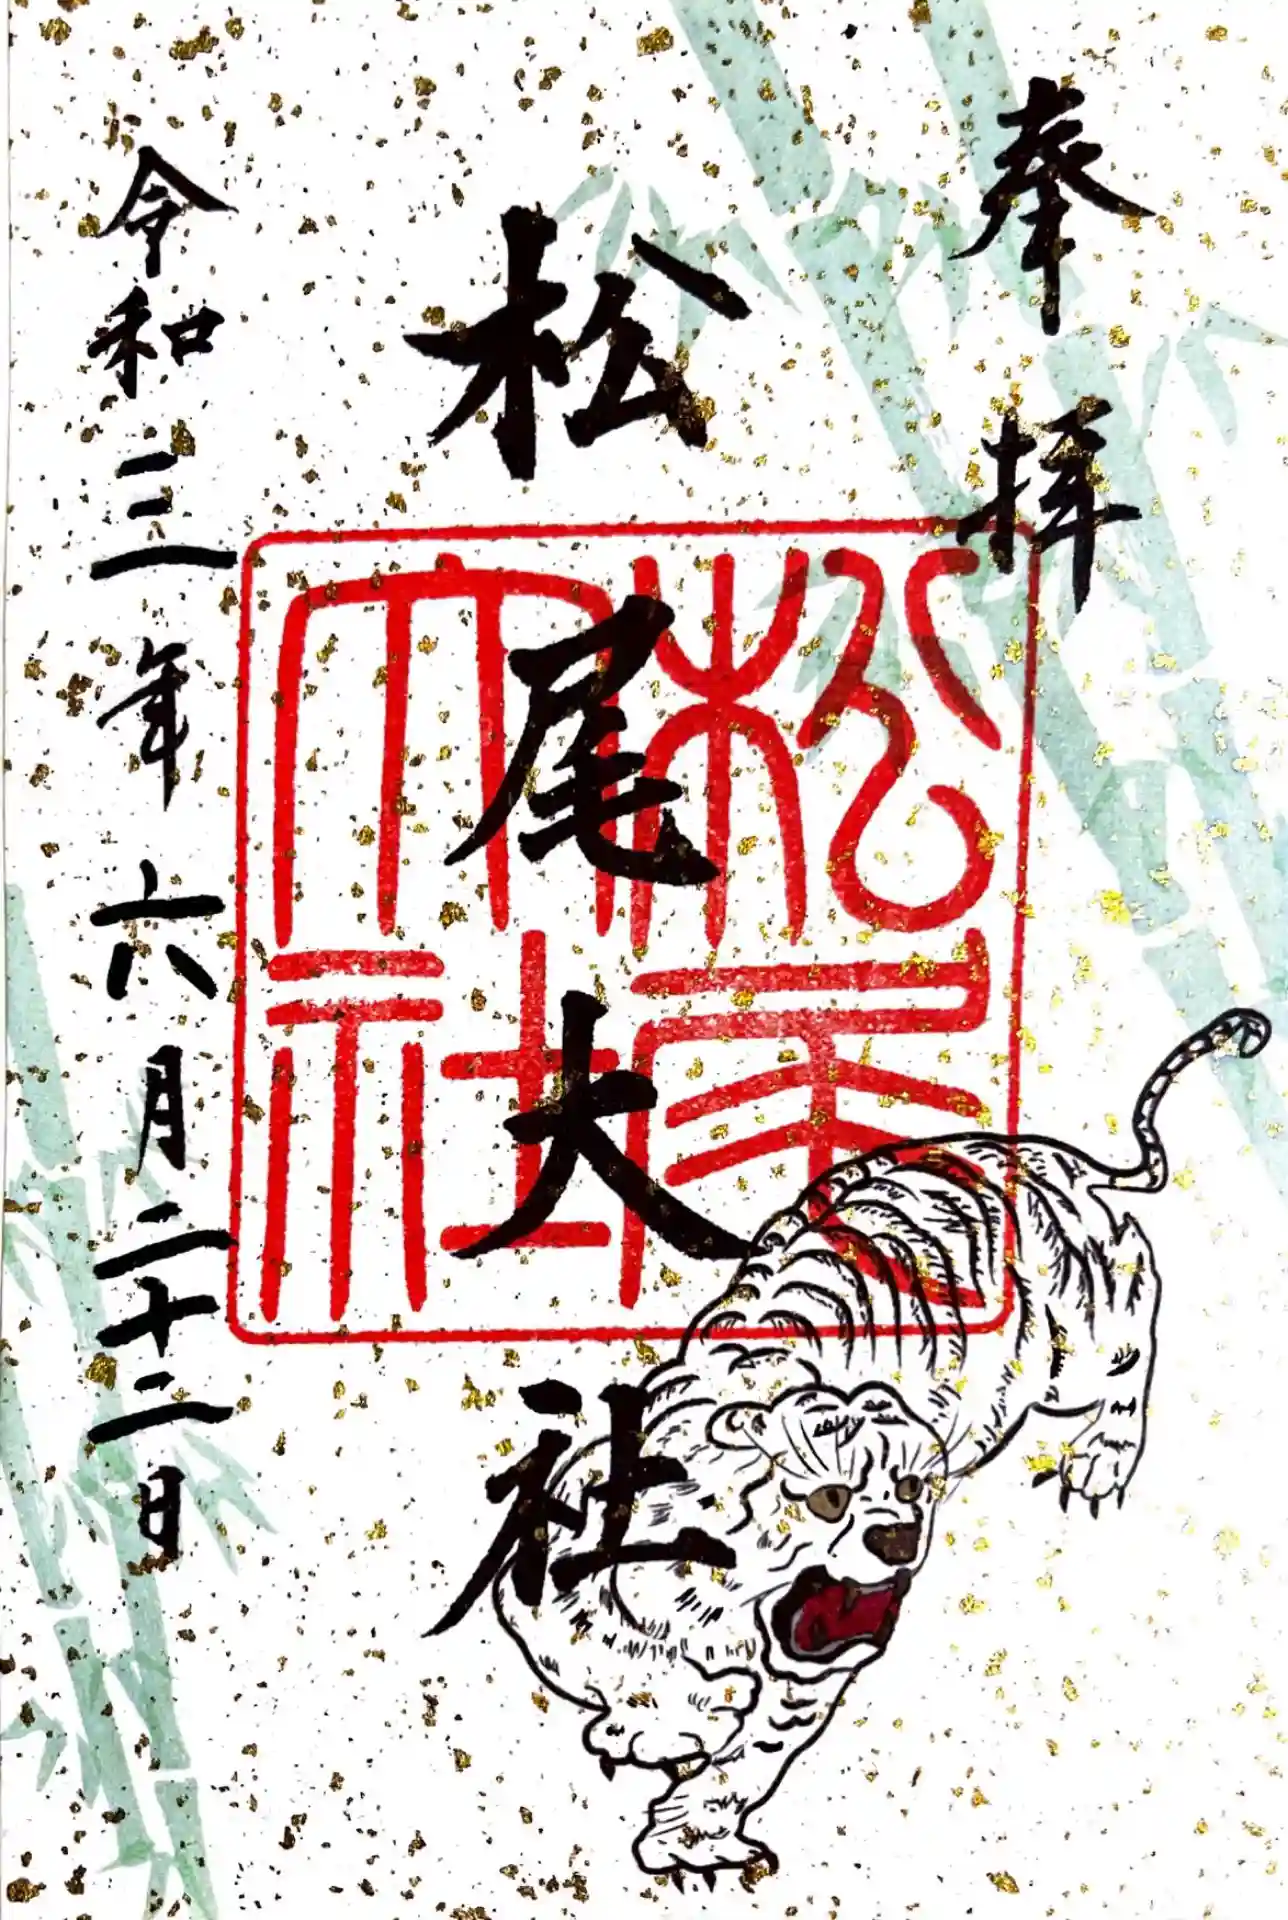 奉拝
松尾大社
松尾大社
令和三年六月二十二日